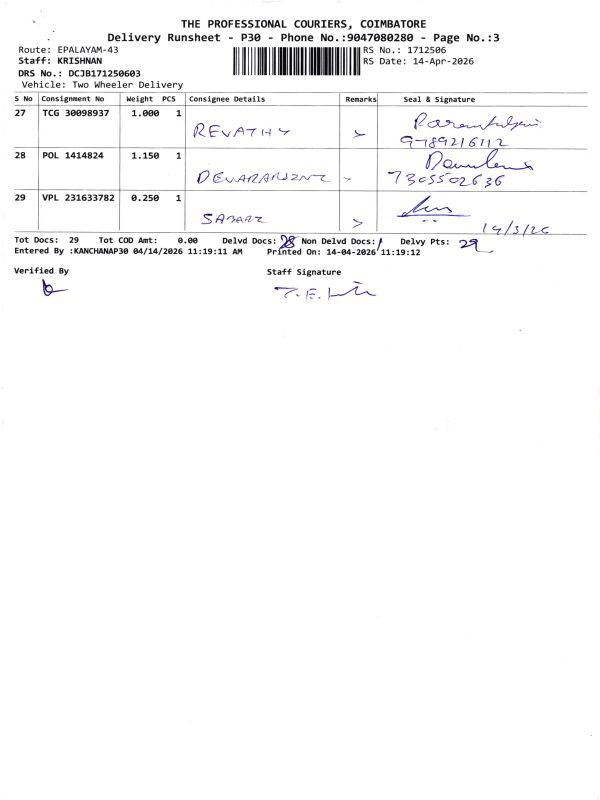 THE PROFESSIONAL COURIERS, COIMBATORE
Delivery Runsheet - P30 - Phone No.:9047080280 - Page No.:3
Route: EPALAYAM-43 RS No.: 1712506
Staff: KRISHNAN RS Date: 14-Apr-2026
DRS No.: DCJB171250603
Vehicle: Two Wheeler Delivery
S No Consignment No Weight PCS Consignee Details Remarks Seal & Signature
27 TCG 30098937 1.000 1 REVATHY
9789216112
28 POL 1414824 1.150 1
7305502636
29 VPL 231633782 0.250 1
Tot Docs: 29 Tot COD Amt: 0.00 Delvd Docs: 28 Non Delvd Docs: 1 Delvy Pts: 29
Entered By :KANCHANAP30 04/14/2026 11:19:11 AM Printed On: 14-04-2026 11:19:12
Verified By Staff Signature